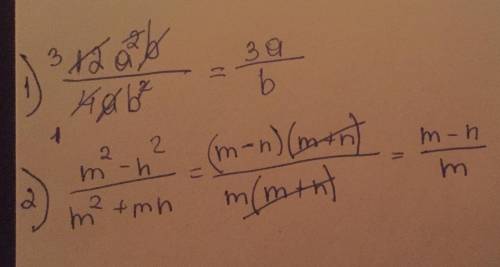 1) 3 12a²b / 4ab² 1 = 3a / b
2) m² - n² / m² + mn = (m-n)(m+n) / m(m+n) = m-n / m